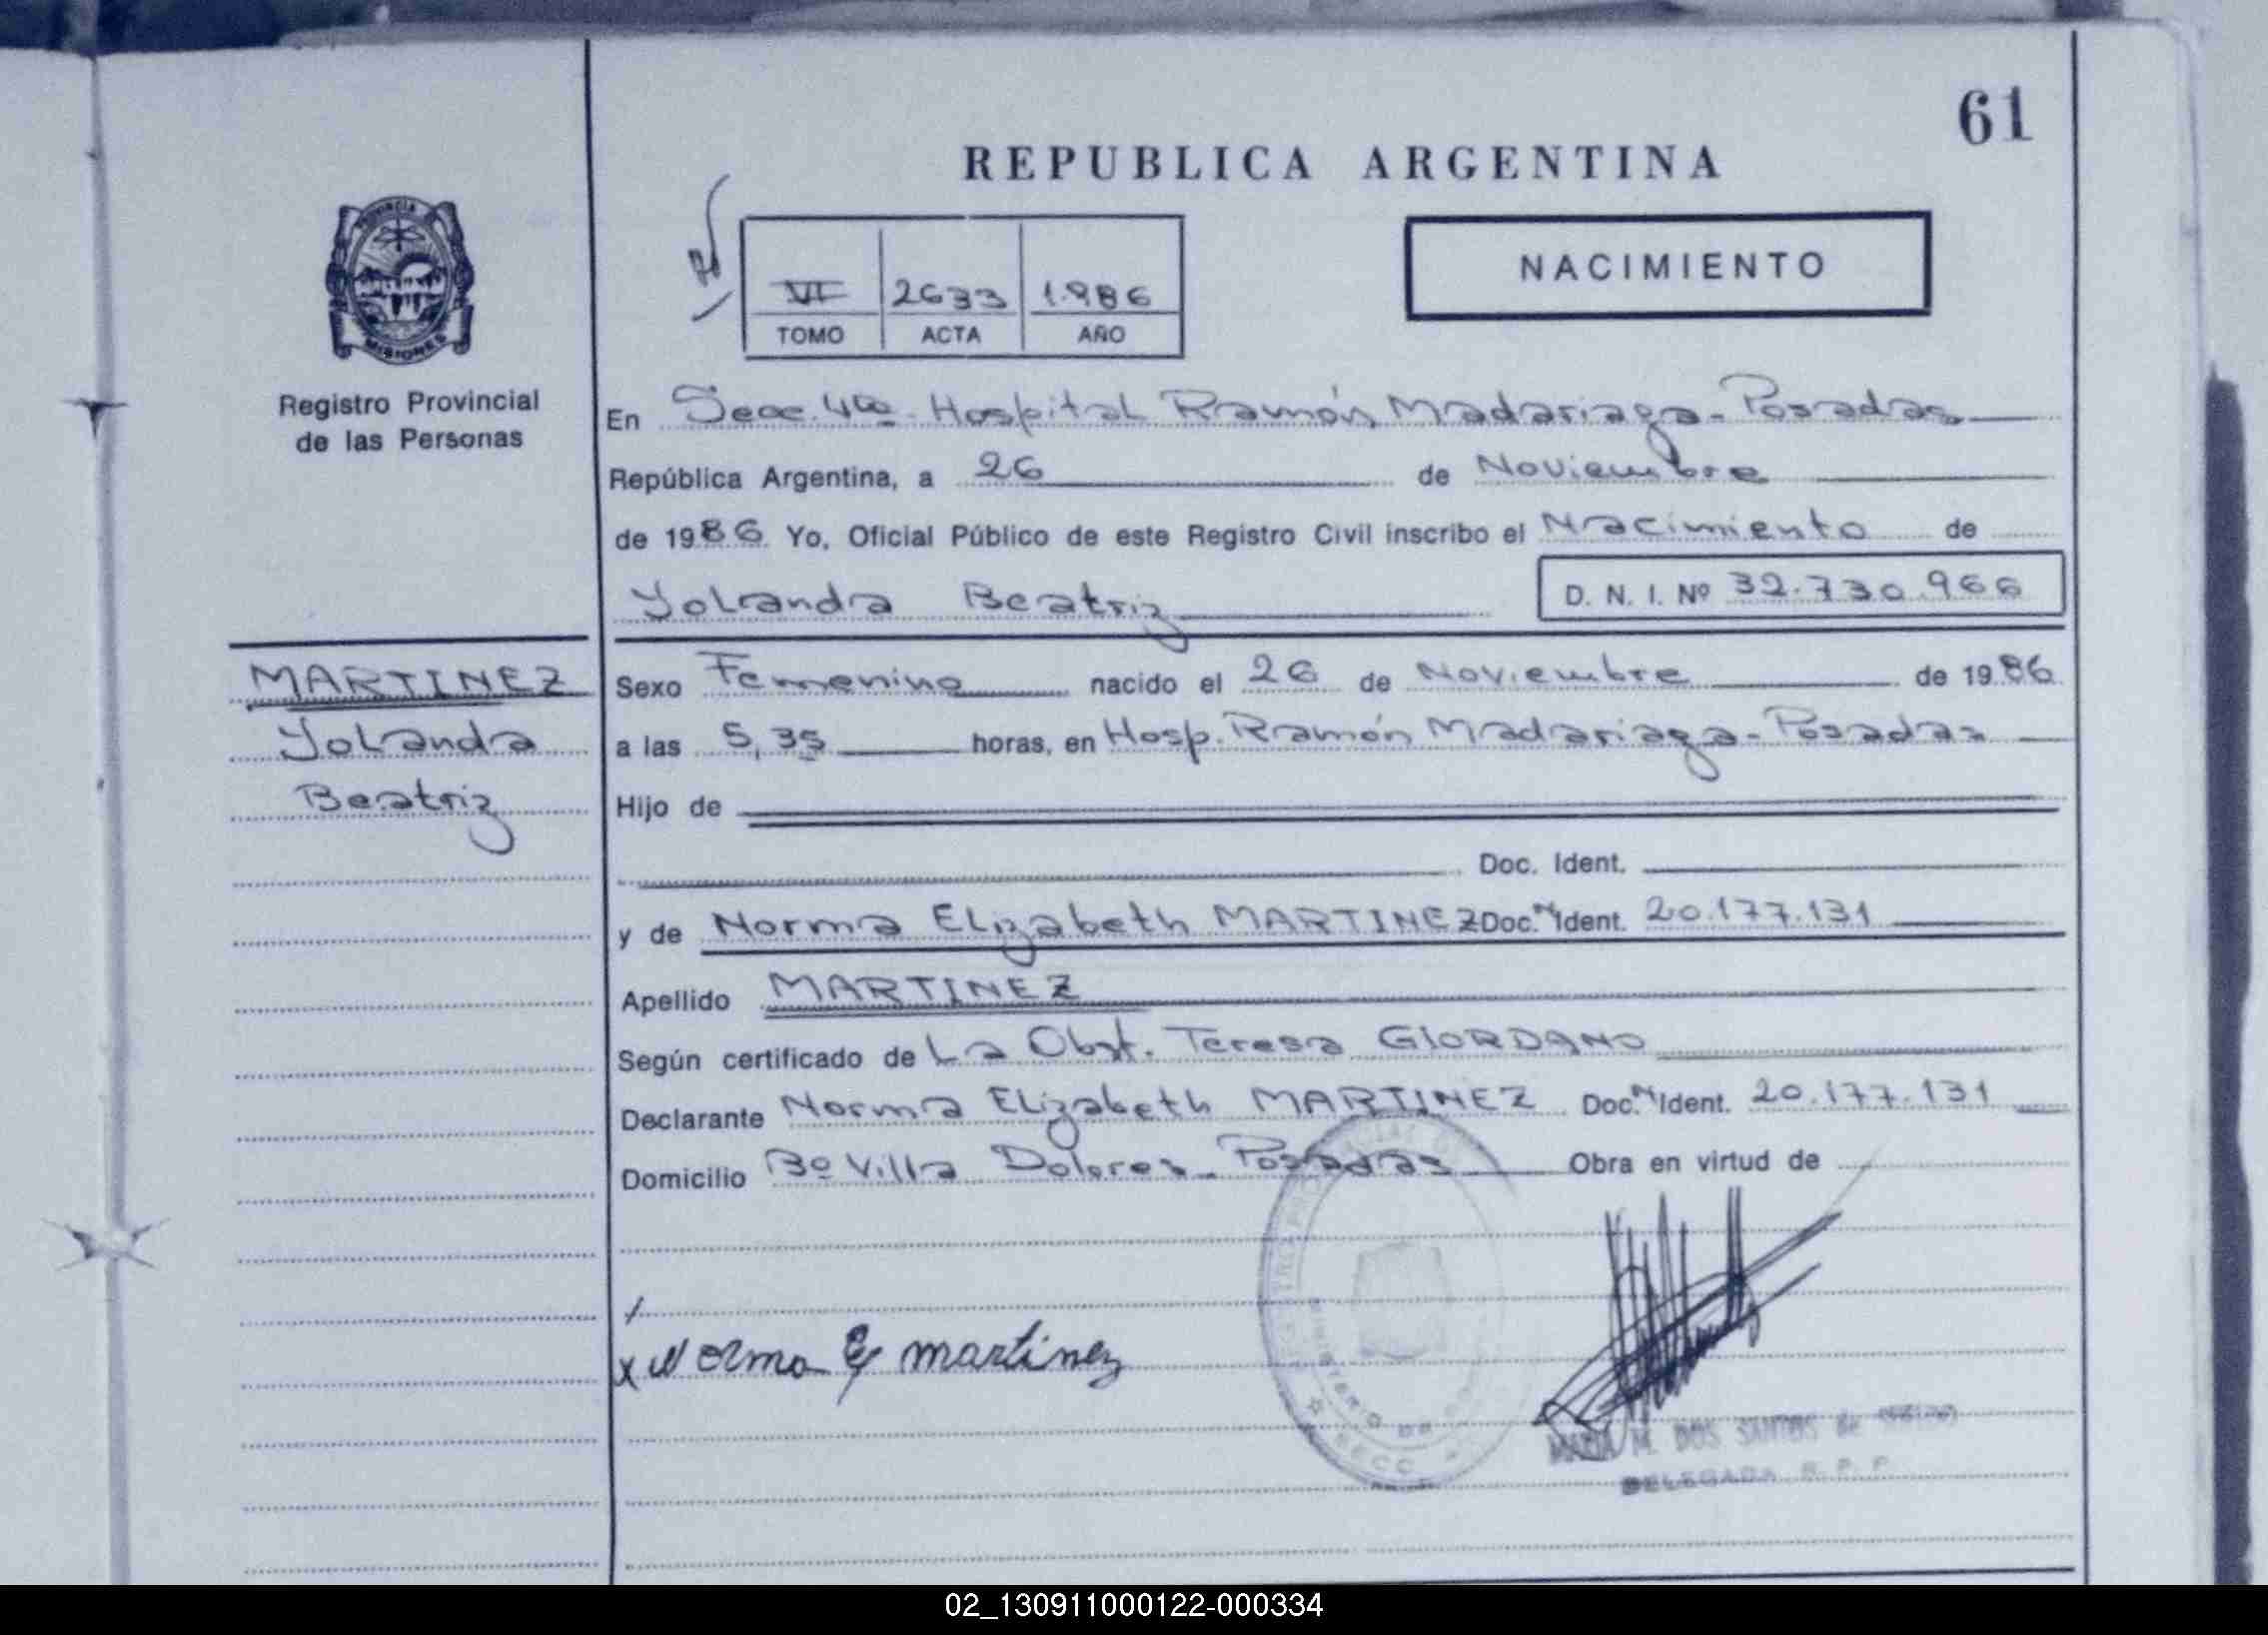 61
REPUBLICA ARGENTINA
PROVINCIA
MISIONES
Registro Provincial
de las Personas
VI 2633 1.986
TOMO ACTA AÑO
NACIMIENTO
En Secc. 4ta. Hospital Ramón Madariaga - Posadas
República Argentina, a 26 de Noviembre
de 1986 Yo, Oficial Público de este Registro Civil inscribo el Nacimiento de
Yolanda Beatriz D. N. I. Nº 32.730.966
MARTINEZ
Yolanda
Beatriz
Sexo Femenino nacido el 26 de Noviembre de 1986
a las 5,35 horas, en Hosp. Ramón Madariaga - Posadas
Hijo de
Doc. Ident.
y de Norma Elizabeth MARTINEZ Doc. N. Ident. 20.177.131
Apellido MARTINEZ
Según certificado de La Obst. Teresa GIORDANO
Declarante Norma Elizabeth MARTINEZ Doc. N. Ident. 20.177.131
Domicilio Bº Villa Dolores - Posadas Obra en virtud de
x Norma E martinez
MINISTERIO DE
SECC
MARIA M. DOS SANTOS de
DELEGADA R. P. P.
02_130911000122-000334